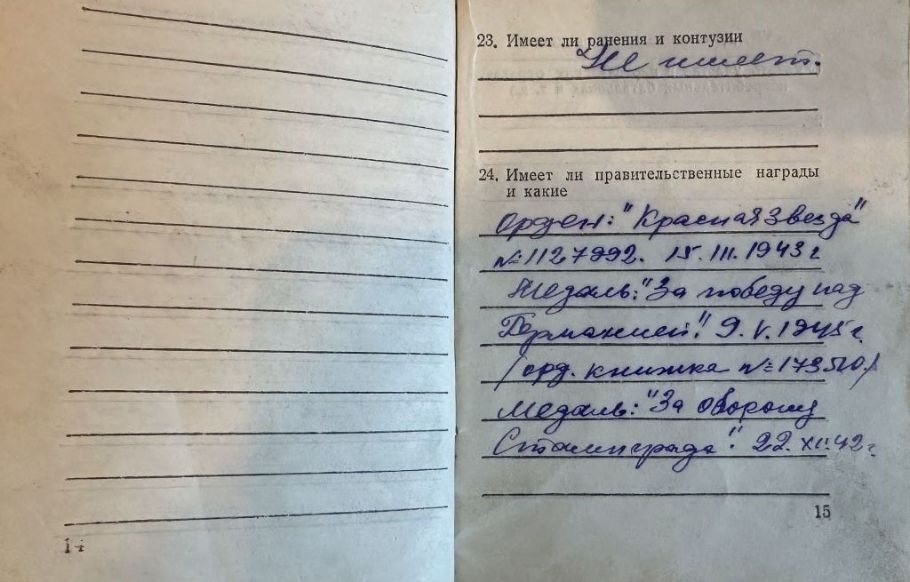 23. Имеет ли ранения и контузии
Не имеет.
24. Имеет ли правительственные награды
и какие
Орден: "Красная Звезда"
15. III. 1943 г
Медаль: "За победу над
Германией". 9. V. 1945 г.
/орд. книжка
Медаль: "За оборону
Сталинграда". 22. XII. 42 г.
14
15